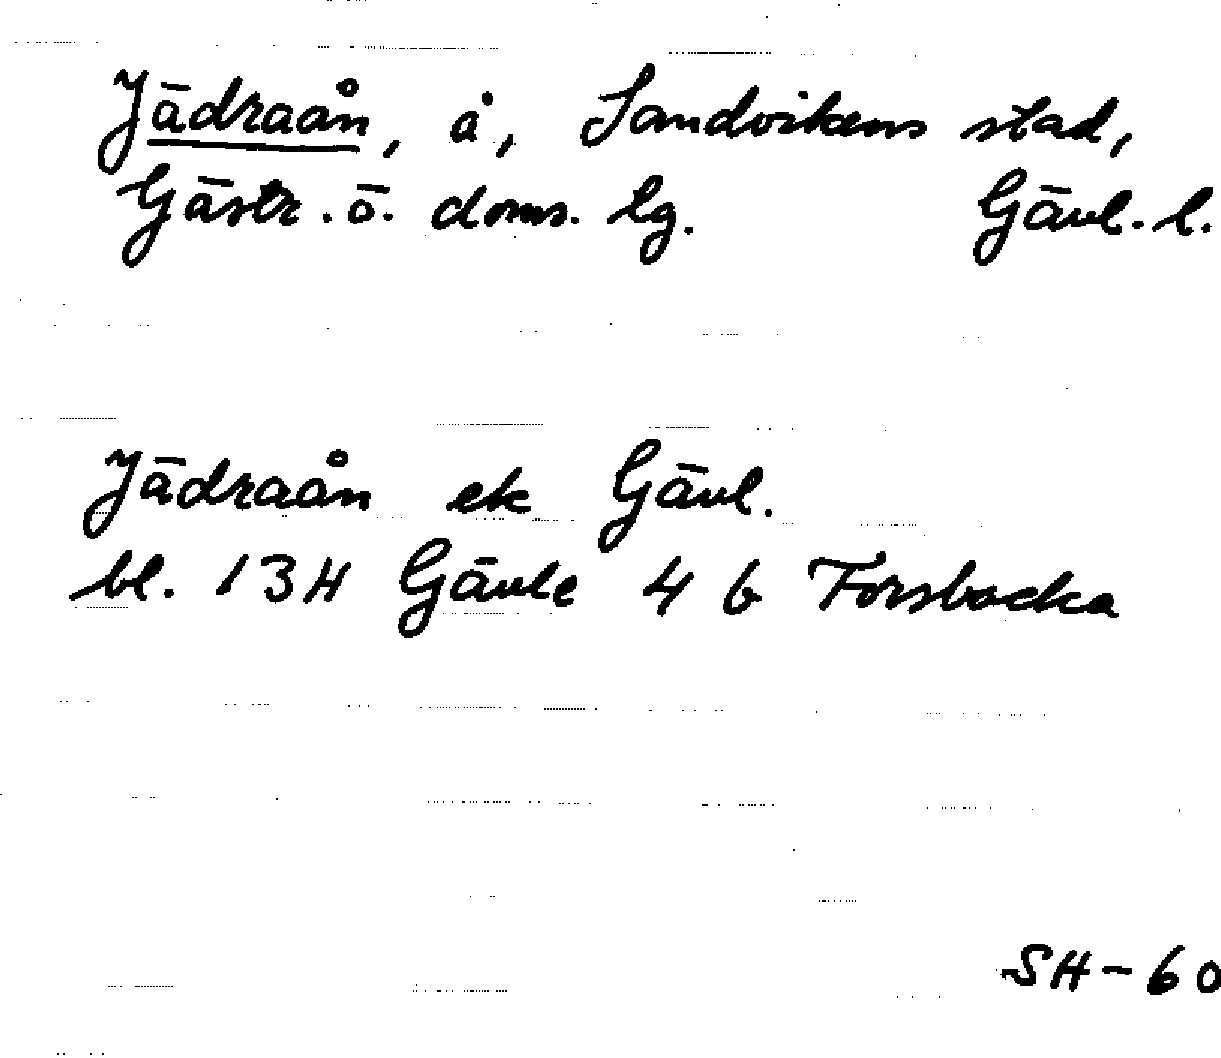 Jädraån, å, Sandvikens stad,
Gästr. ö. doms. lg. Gävl. l.
Jädraån ek Gävl.
bl. 13H Gävle 4 b Forsbacka
SH-60